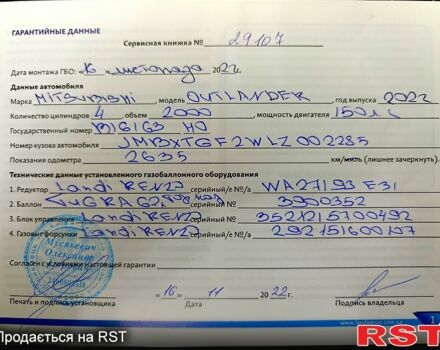 ГАРАНТИЙНЫЕ ДАННЫЕ
Сервисная книжка № 29107
Дата монтажа ГБО: «16» листопада 2022 г.
Данные автомобиля
Марка Mitsubishi, модель OUTLANDER, год выпуска 2022
Количество цилиндров 4, объем 2000, мощность двигателя 150 лс
Государственный номер 6163 HO
Номер кузова автомобиля JMBXTGF2WLZ002285
Показания одометра 2635 км/миль (лишнее зачеркнуть).
Технические данные установленного газобаллонного оборудования
1. Редуктор Landi RENZO серийный/е №/а WA27193 E31
2. Баллон серийный/е №/а 3900352
3. Блок управления Landi RENZO серийный/е №/а 3521215700492
4. Газовые форсунки Landi RENZO серийный/е №/а 292151600107
Мусякевич
Олександр
Согласен с условиями настоящей гарантии
«16» 11 2022 г.
Печать и подпись установщика Дата Подпись владельца
www.landirenzo.com.ua 1
Продається на RST
RST